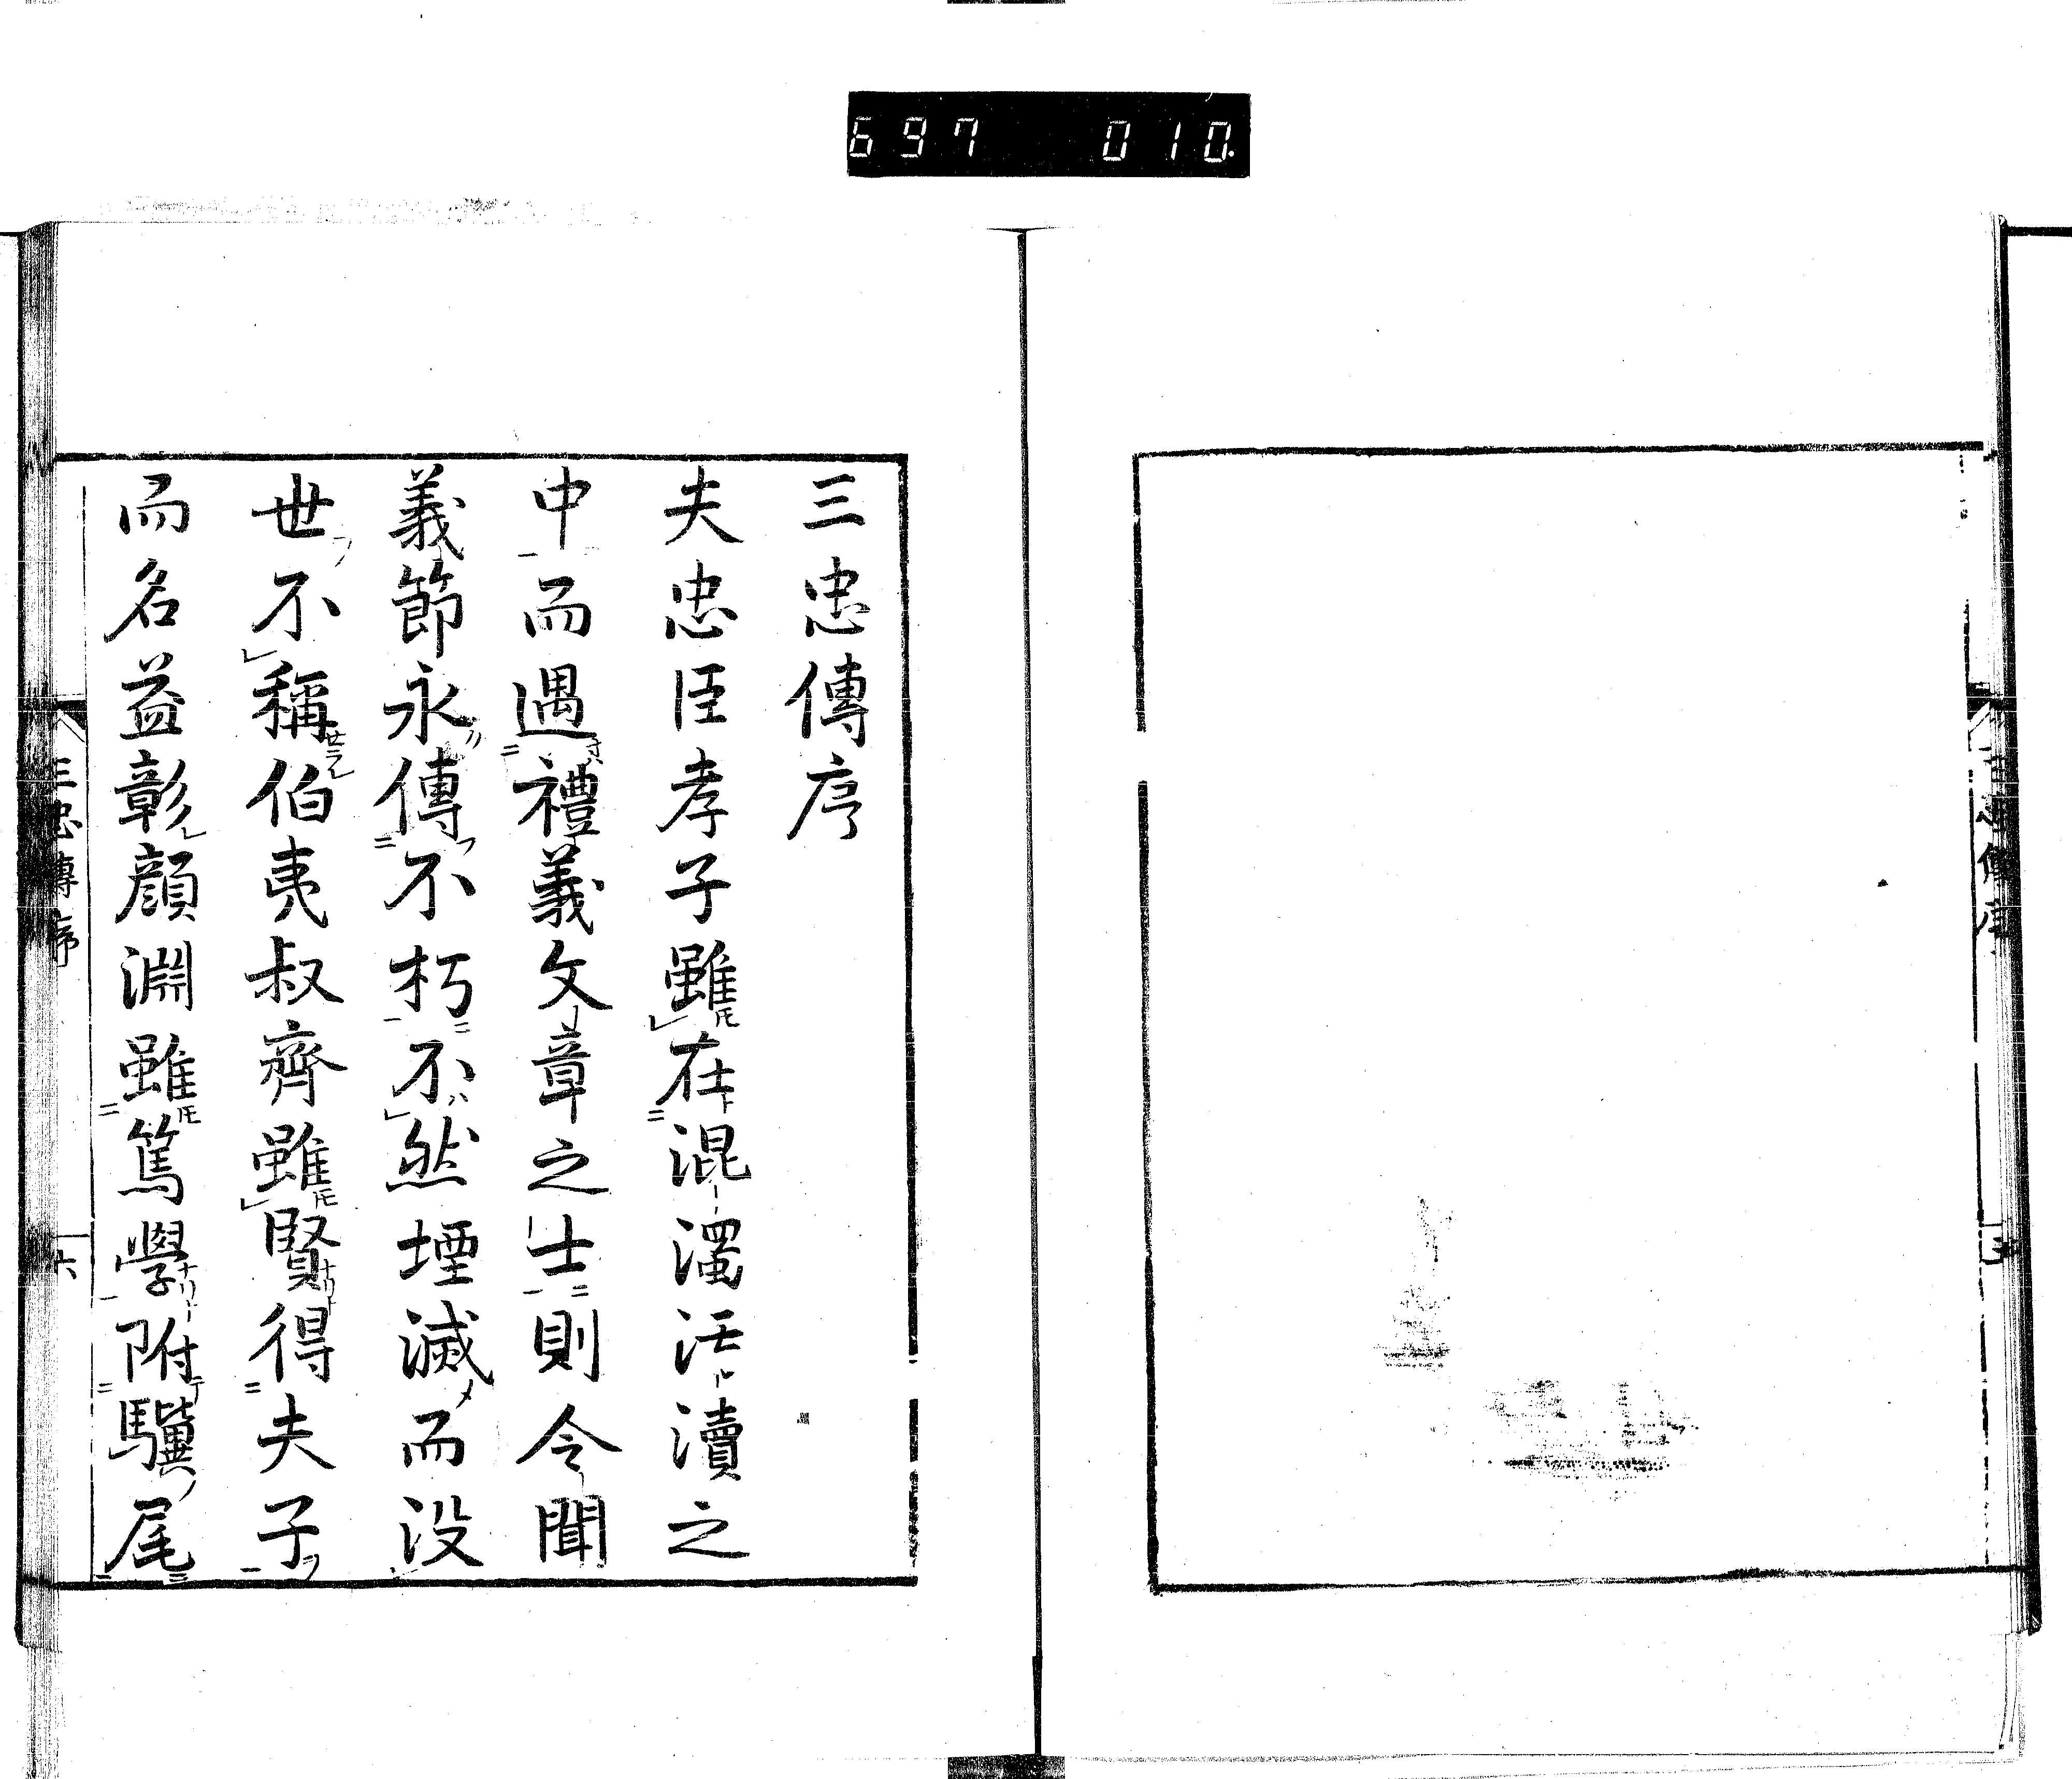 697 010.
三忠傳序
夫忠臣孝子雖𪜈在混濁汚瀆之
中而遇禮義文章之士則令聞
義節永傳不朽不然堙滅〆而没
世不稱伯夷叔齊雖𪜈賢得夫子
而名益彰顔淵雖𪜈篤學附驥尾
三忠傳序
六